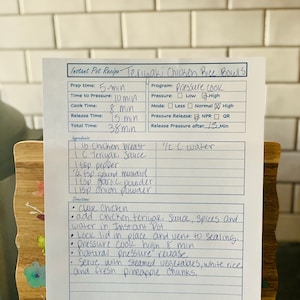 Instant Pot Recipe Teriyaki Chicken Rice Bowls
Prep time: 5 min Program: Pressure Cook
Time to Pressure: 10 min Pressure: Low High
Cook Time: 8 min Mode: Less Normal High
Release Time: 15 min Pressure Release: NPR QR
Total Time: 38 min Release Pressure after: 15 Min
Ingredients
1 lb Chicken Breast 1/2 C water
1 C Teriyaki Sauce
1 tsp pepper
1/2 tsp ground mustard
1 tsp garlic powder
1 tsp onion powder
Directions
• Cube Chicken
• add chicken, teriyaki sauce, spices and
water in Instant Pot
• Lock lid in place and vent to sealing.
• pressure cook high 8 min
• natural pressure release
• Serve with steamed vegetables, white rice
and fresh pineapple chunks.